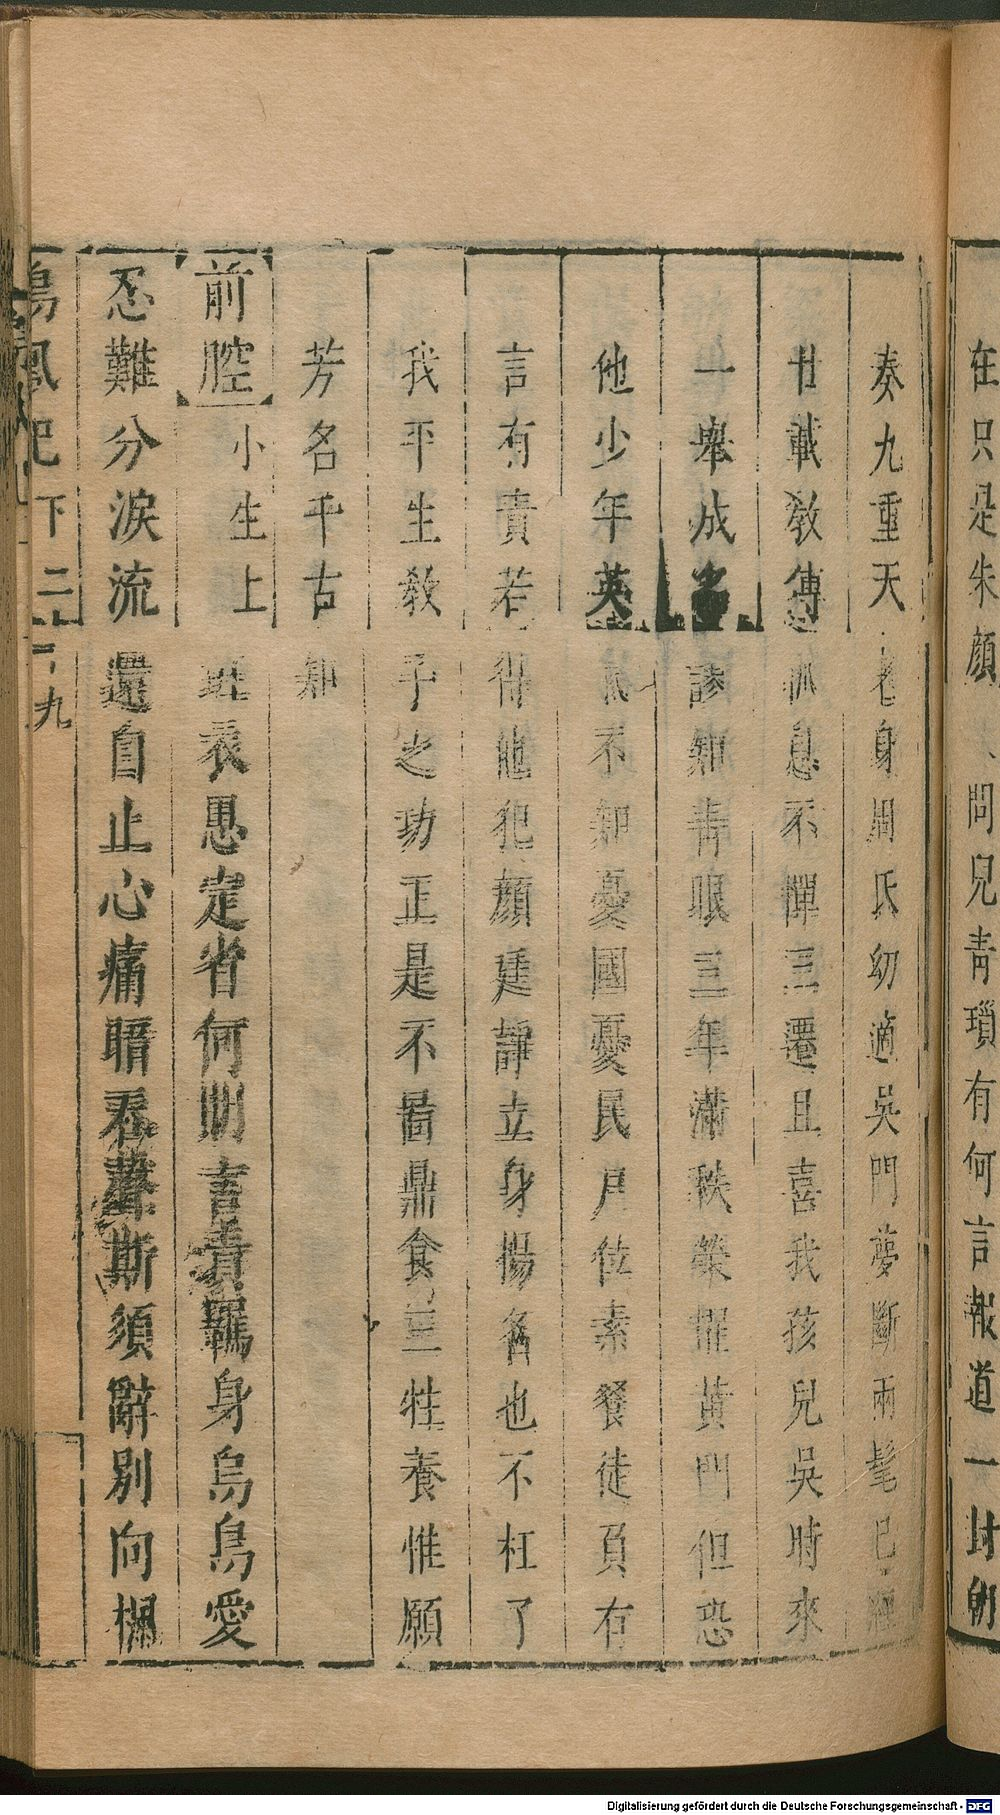 在只是朱顏問兒青瑣有何言報道一封朝
奏九重天老身周氏幼適吳門夢斷兩髦已
廿載教傳孤息不憚三遷且喜我孩兒吳時來
一舉成名諺知青眼三年滿秩榮擢黃門但恐
他少年英不知憂國憂民尸位素餐徒負有
言有責若得他犯顏廷諍立身揚名也不枉了
我平生敎子之功正是不啚鼎食三牲養惟願
芳名千古知
前腔 小生上 班衣愚定省何期言責羈身烏鳥愛
忍難分淚流還自止心痛暗吞聲斯須辭別向楓
鳴鳳記 下 二 二九
Digitalisierung gefördert durch die Deutsche Forschungsgemeinschaft - DFG